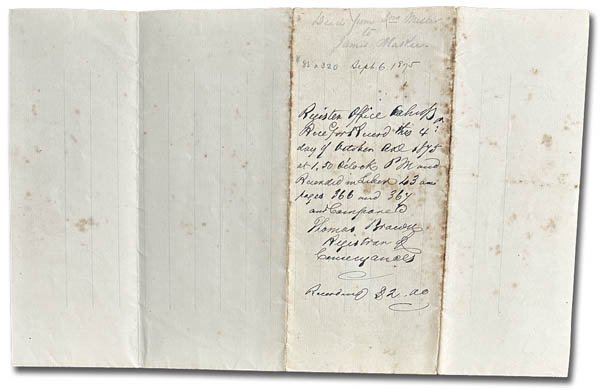 Deed from
to
James
Sept. 6. 1875
Register Office Oahu
Recd for Record this 4th
day of October A.D. 1875
at 1.50 o'clock P M and
Recorded in Liber 43 on
pages 366 and 367
and Compared
Thomas Brown
Registrar of
Conveyances
Recording $2.00